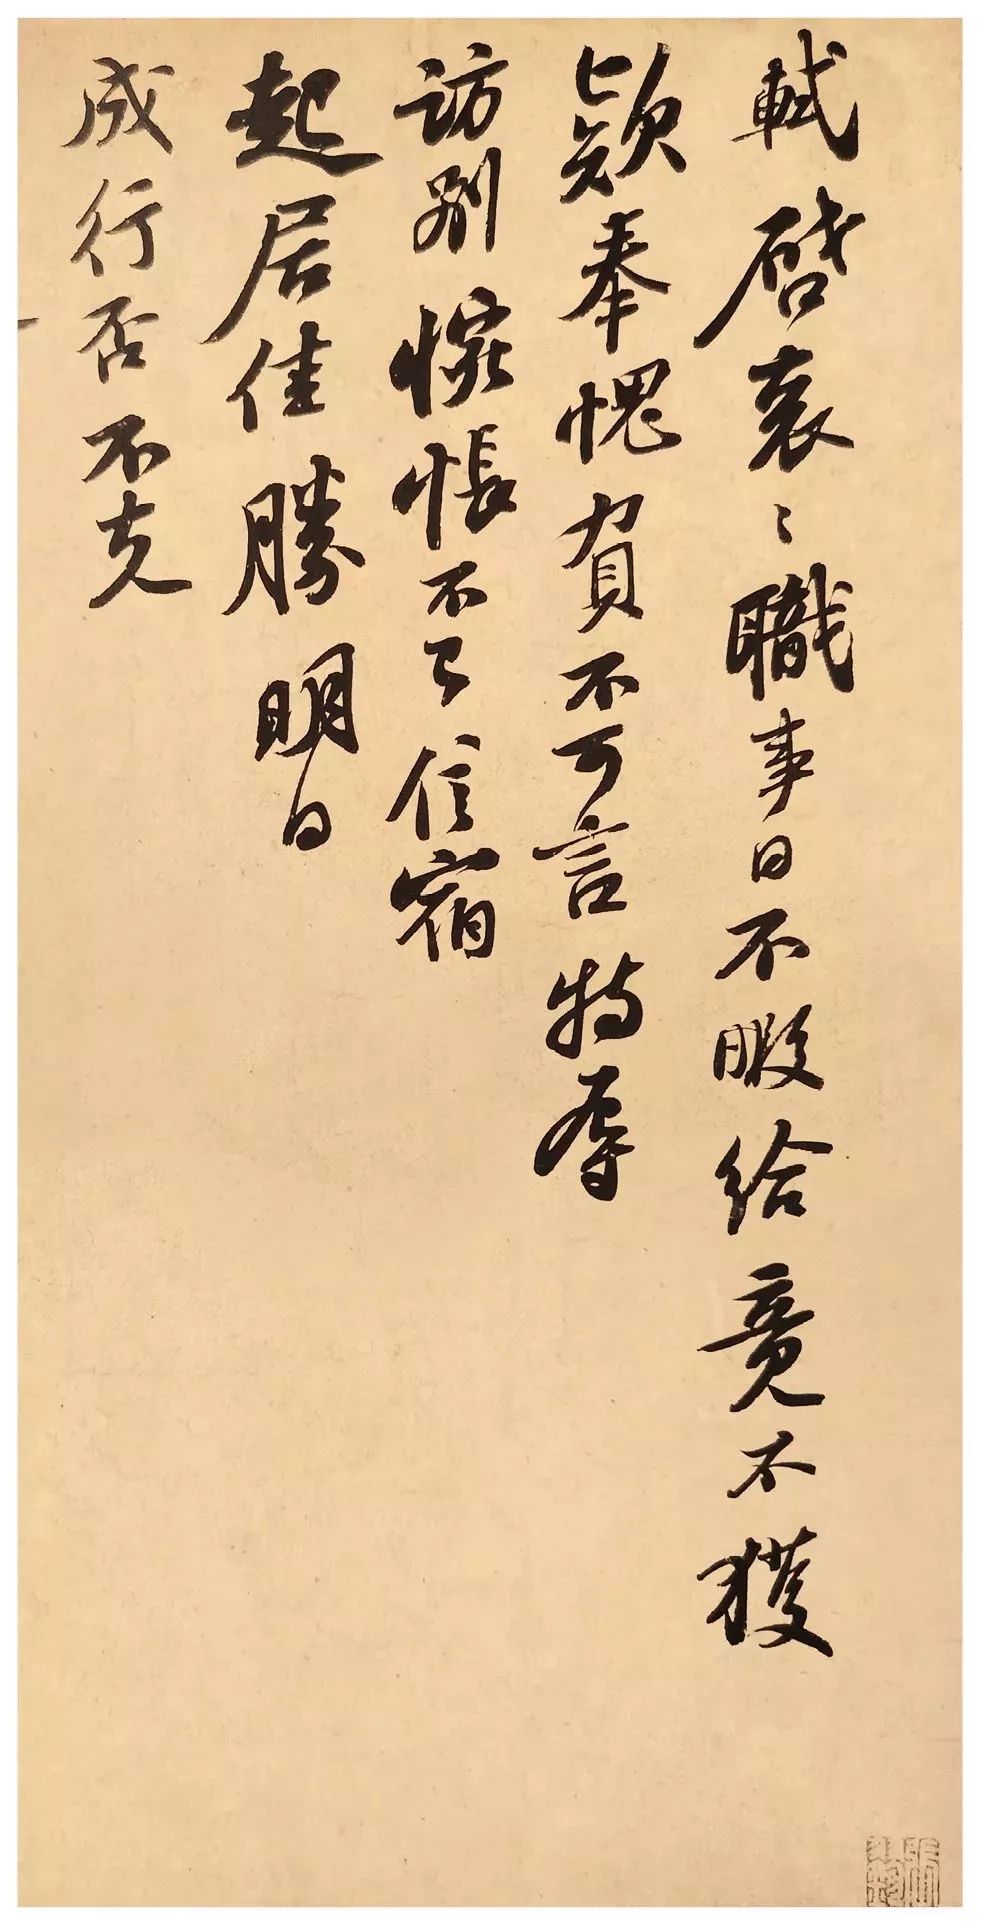 軾啓衰〻職事日不暇給竟不獲
款奉愧負不可言特辱
訪別惋悵不已信宿
起居佳勝明日
成行否不克